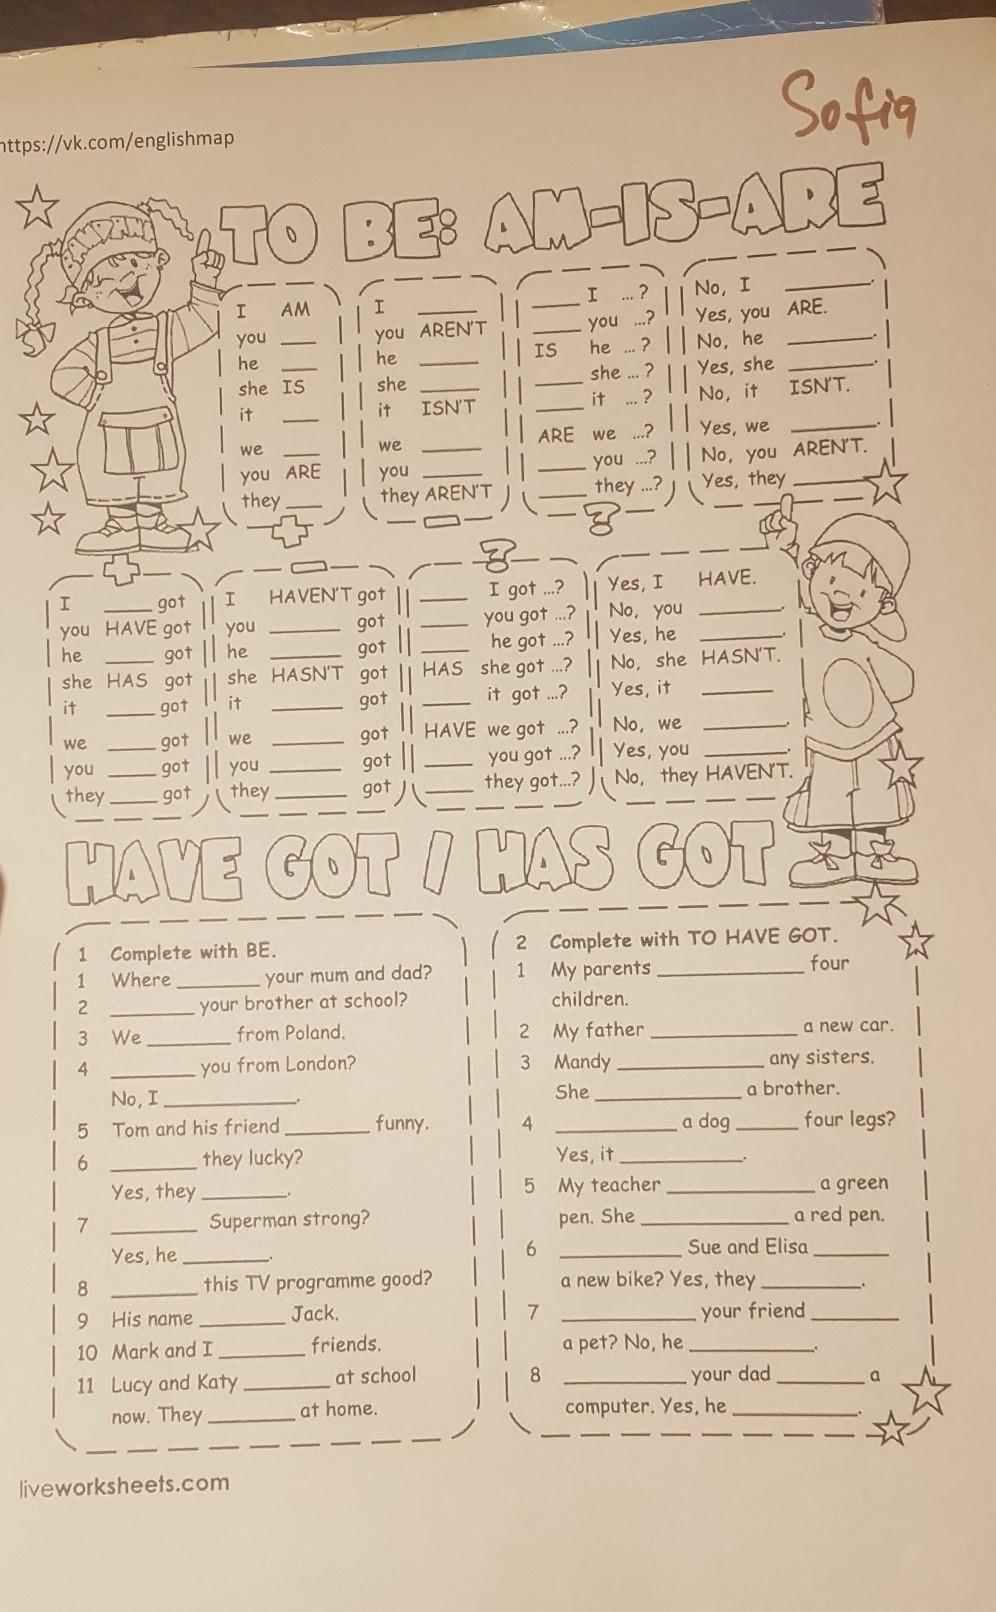 https://vk.com/englishmap
Sofia
TO BE: AM-IS-ARE
I AM
you ___
he ___
she IS
it ___
we ___
you ARE
they ___
+
I ___
you AREN'T
he ___
she ___
it ISN'T
we ___
you ___
they AREN'T
-
___ I ...?
___ you ...?
IS he ...?
___ she ...?
___ it ...?
ARE we ...?
___ you ...?
___ they ...?
?
No, I ___.
Yes, you ARE.
No, he ___.
Yes, she ___.
No, it ISN'T.
Yes, we ___.
No, you AREN'T.
Yes, they ___
+
I ___ got
you HAVE got
he ___ got
she HAS got
it ___ got
we ___ got
you ___ got
they ___ got
-
I HAVEN'T got
you ___ got
he ___ got
she HASN'T got
it ___ got
we ___ got
you ___ got
they ___ got
?
___ I got ...?
___ you got ...?
___ he got ...?
HAS she got ...?
___ it got ...?
HAVE we got ...?
___ you got ...?
___ they got...?
Yes, I HAVE.
No, you ___.
Yes, he ___.
No, she HASN'T.
Yes, it ___
No, we ___.
Yes, you ___.
No, they HAVEN'T.
HAVE GOT / HAS GOT
1 Complete with BE.
1 Where ___ your mum and dad?
2 ___ your brother at school?
3 We ___ from Poland.
4 ___ you from London?
No, I ___.
5 Tom and his friend ___ funny.
6 ___ they lucky?
Yes, they ___.
7 ___ Superman strong?
Yes, he ___.
8 ___ this TV programme good?
9 His name ___ Jack.
10 Mark and I ___ friends.
11 Lucy and Katy ___ at school
now. They ___ at home.
2 Complete with TO HAVE GOT.
1 My parents ___ four
children.
2 My father ___ a new car.
3 Mandy ___ any sisters.
She ___ a brother.
4 ___ a dog ___ four legs?
Yes, it ___.
5 My teacher ___ a green
pen. She ___ a red pen.
6 ___ Sue and Elisa ___
a new bike? Yes, they ___.
7 ___ your friend ___
a pet? No, he ___.
8 ___ your dad ___ a
computer. Yes, he ___.
liveworksheets.com